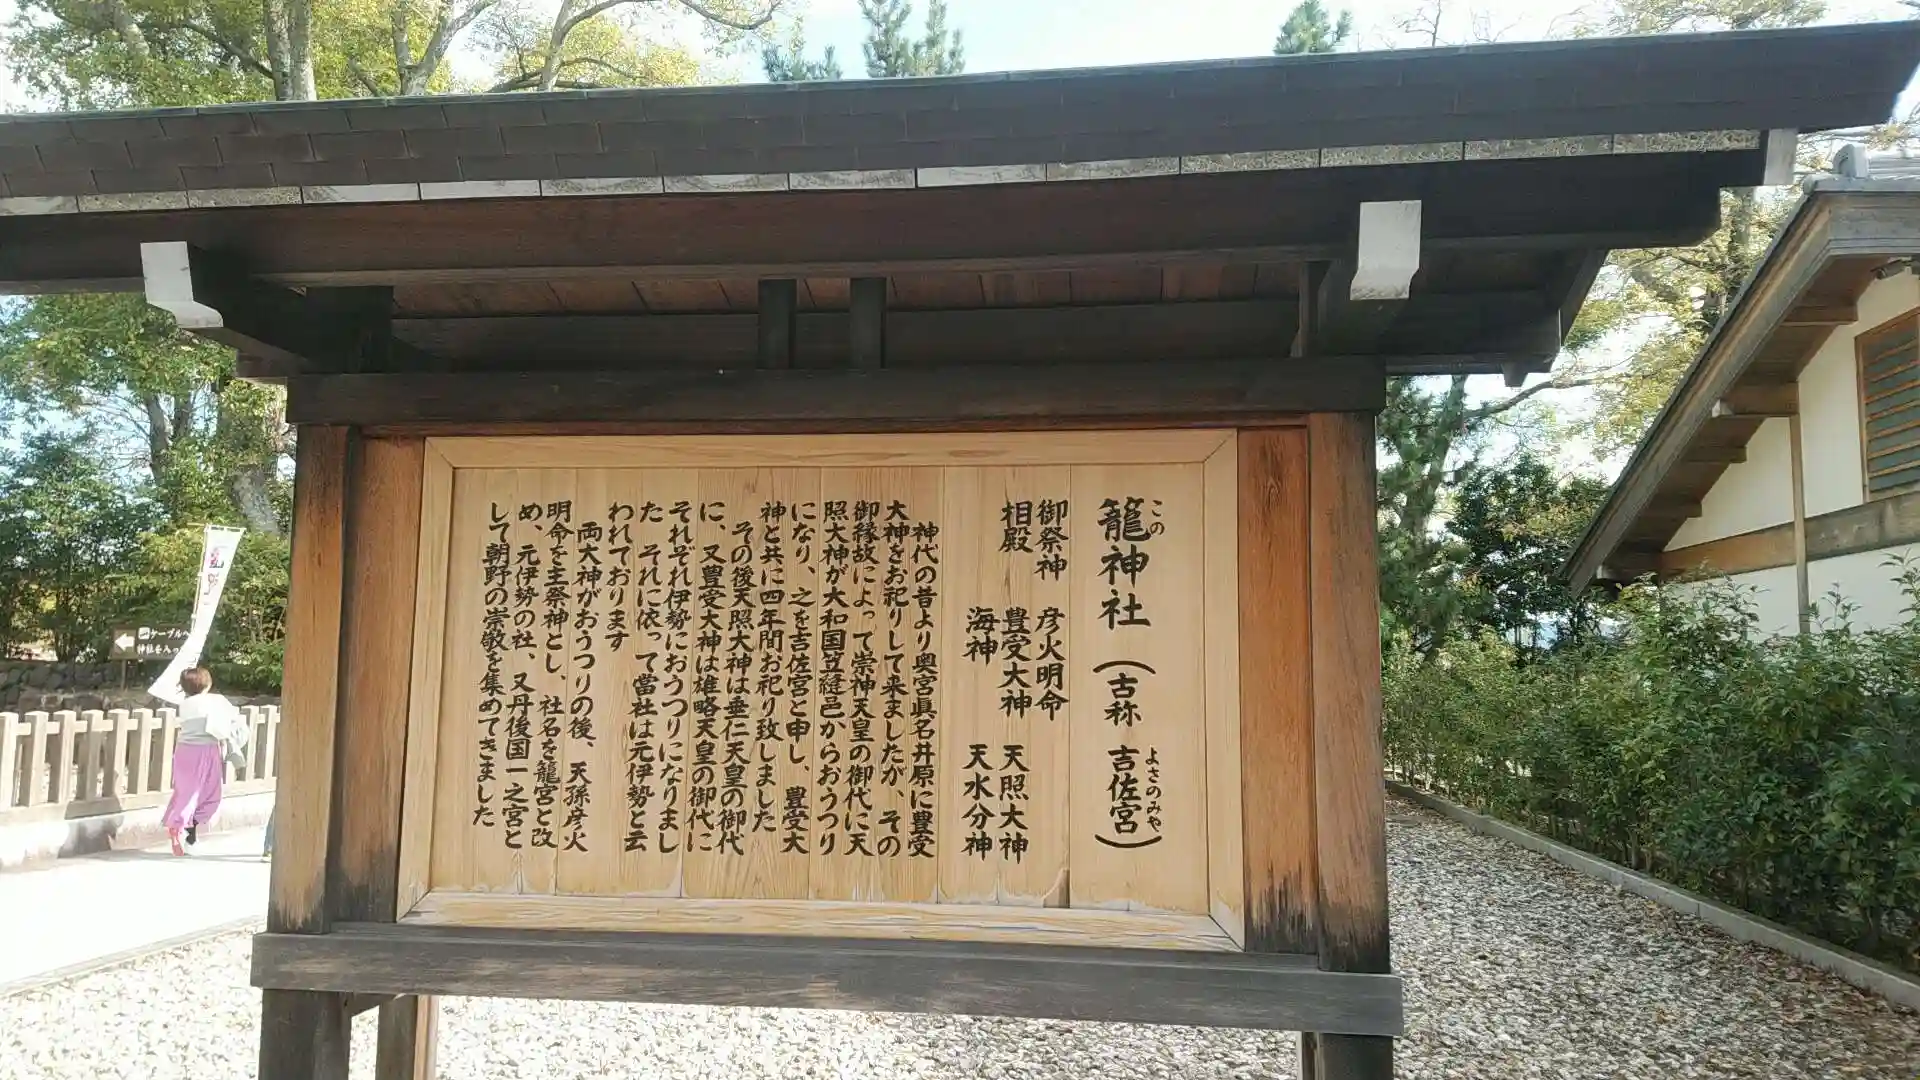 籠神社（古称 吉佐宮）
この
よさのみや
御祭神 彦火明命
相殿 豊受大神 天照大神
海神 天水分神
神代の昔より奥宮眞名井原に豊受
大神をお祀りして来ましたが、その
御縁故によって崇神天皇の御代に天
照大神が大和国笠縫邑からおうつり
になり、之を吉佐宮と申し、豊受大
神と共に四年間お祀り致しました
その後天照大神は垂仁天皇の御代
に、又豊受大神は雄略天皇の御代に
それぞれ伊勢におうつりになりまし
た それに依って當社は元伊勢と云
われております
両大神がおうつりの後、天孫彦火
明命を主祭神とし、社名を籠宮と改
め、元伊勢の社、又丹後国一之宮と
して朝野の崇敬を集めてきました
ケーブルへ